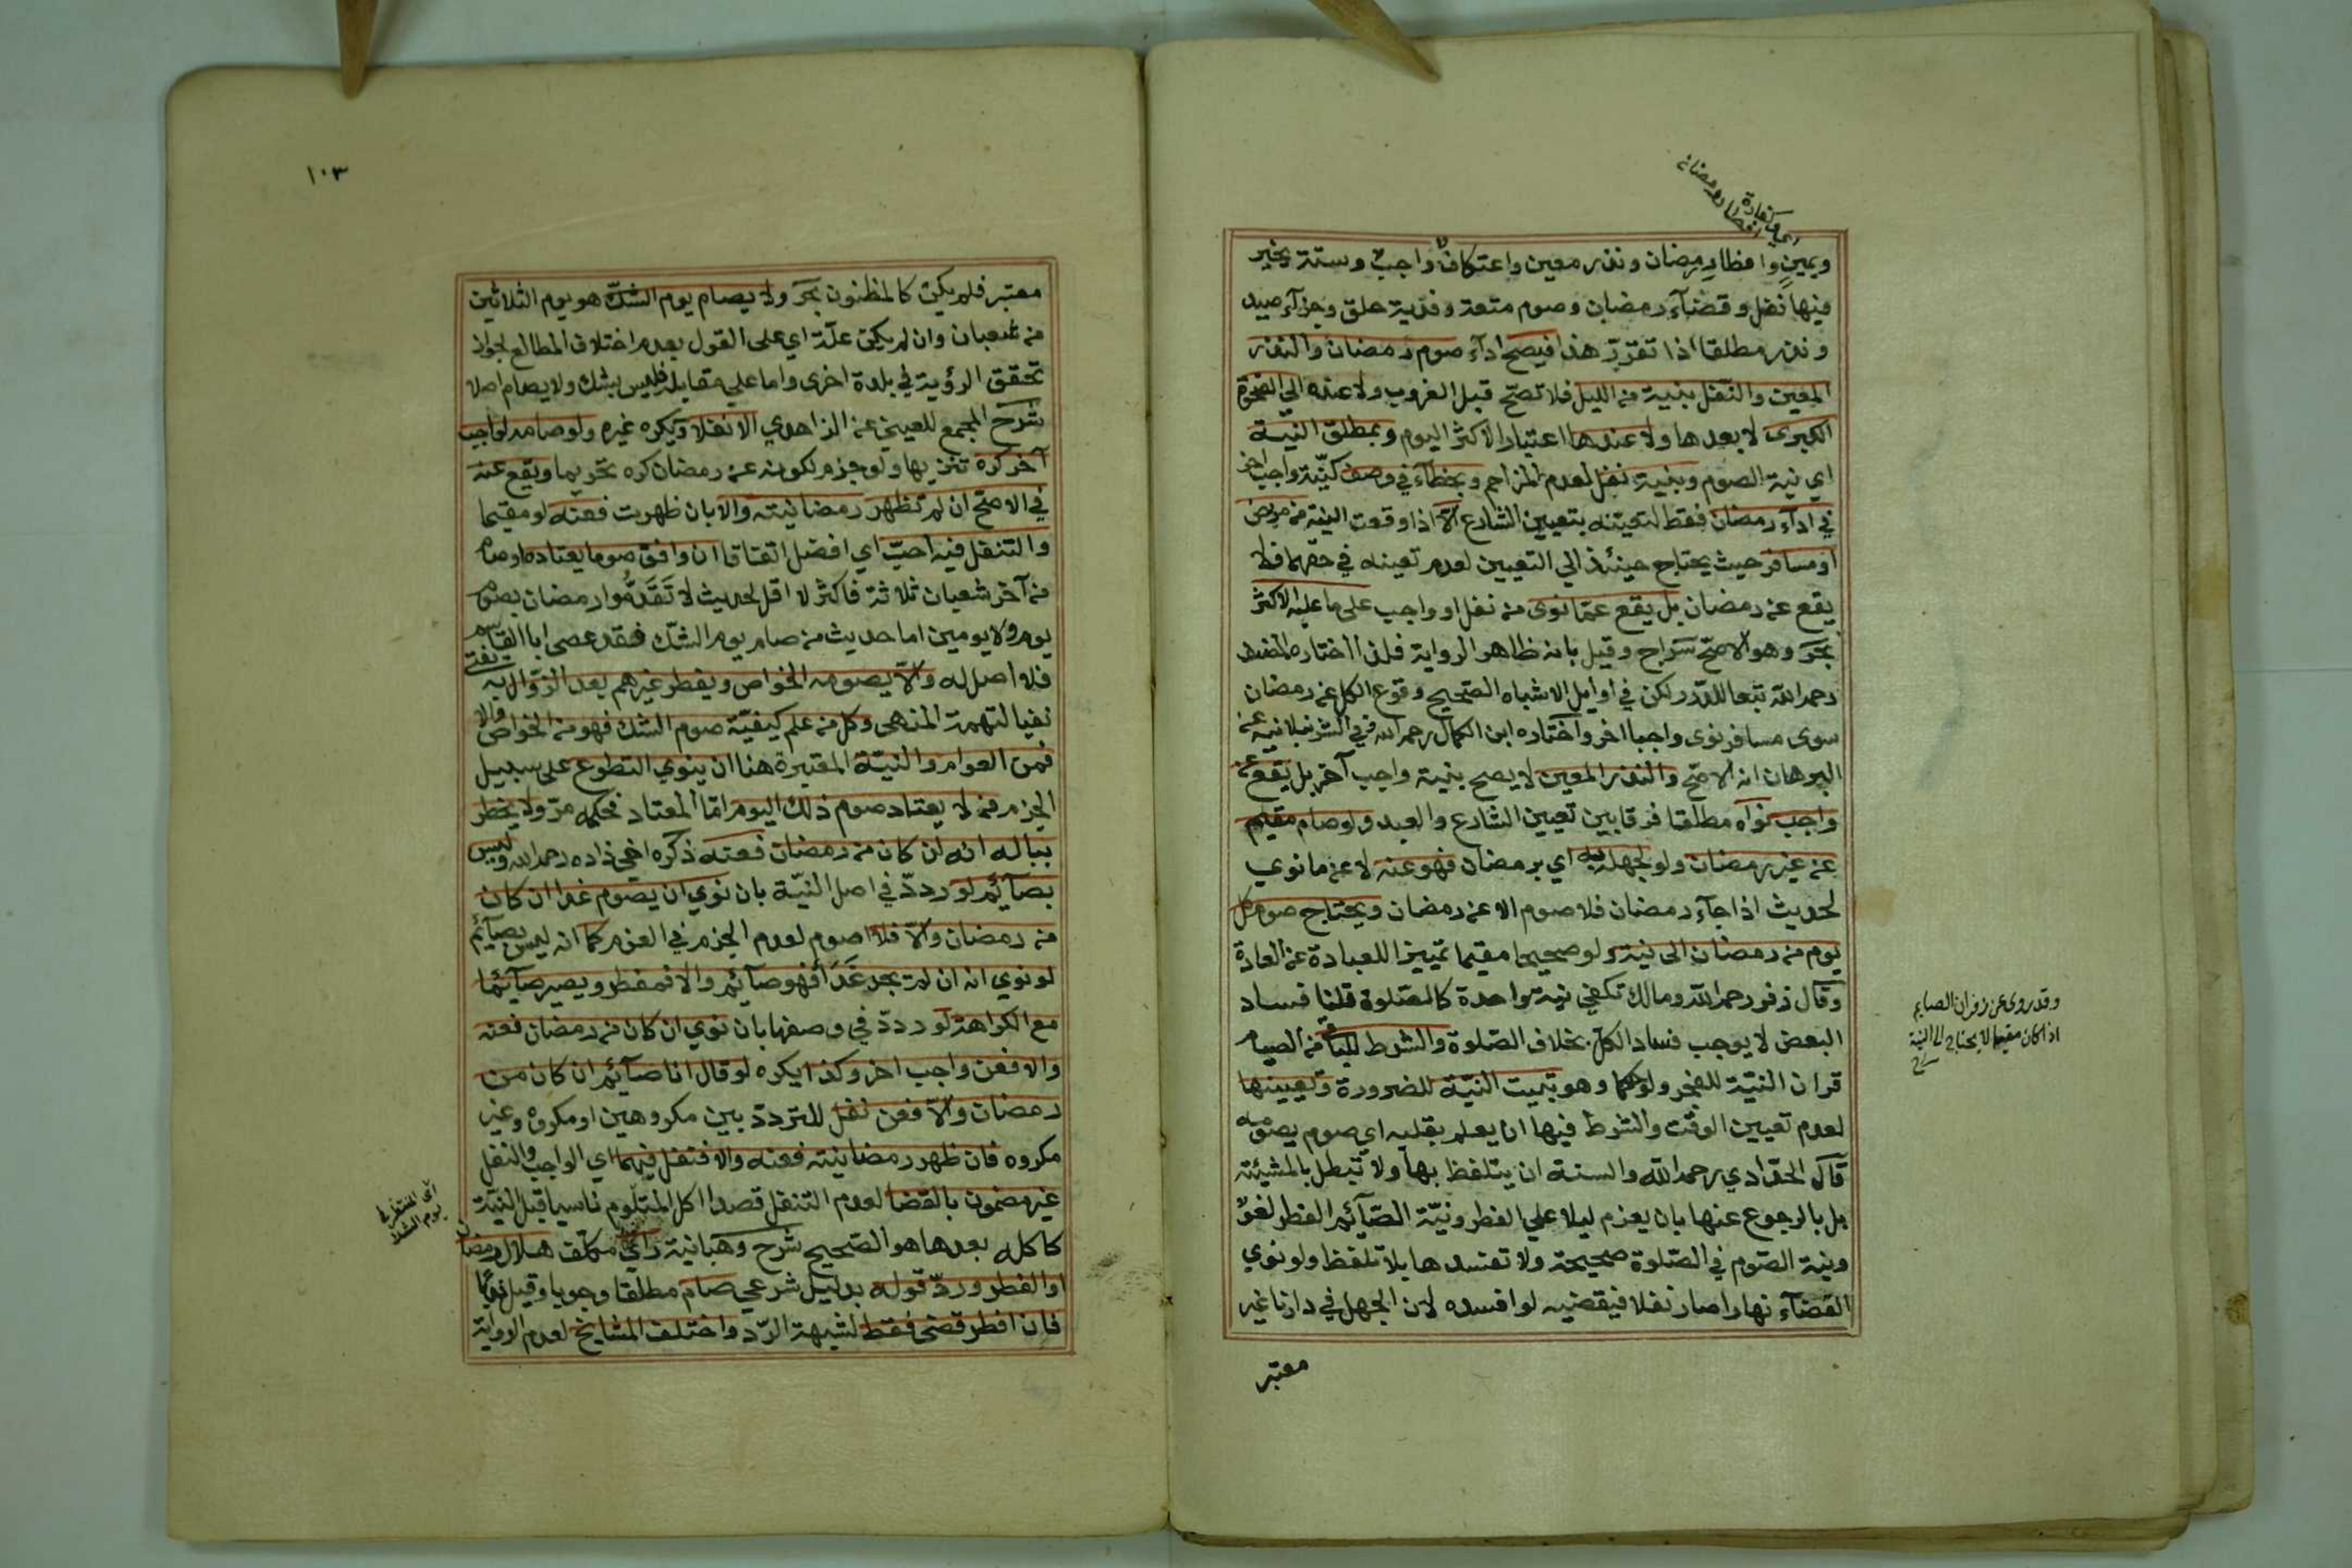 اي كفارة
افطار رمضان
ويمين وافطار رمضان ونذر معين واعتكاف واجب وستة يخير
فيها نفل وقضآء رمضان وصوم متعة وفدية حلق وجزآء صيد
ونذر مطلقا اذا تقرر هذا فيصح ادآء صوم رمضان والنذر
المعين والنفل بنية من الليل فلا تصح قبل الغروب ولا عنده الي الضحوة
الكبرى لا بعدها ولا عندها اعتبارا لاكثر اليوم وبمطلق النية
اي نية الصوم وبنية نفل لعدم المزاحم وبخطآء في وصف كنية واجب اخر
في ادآء رمضان فقط لتعينه بتعيين الشارع الا اذا وقعت النية من مريض
او مسافر حيث يحتاج حينئذ الي التعيين لعدم تعينه في حقهما فلا
يقع عن رمضان بل يقع عما نوى من نفل او واجب على ما عليه الاكثر
بحر وهو الاصح سراج وقيل بانه ظاهر الرواية فلذا اختاره المصنف
رحمه الله تبعا للدرر لكن في اوايل الاشباه الصحيح وقوع الكل عن رمضان
سوى مسافر نوى واجبا اخر واختاره ابن الكمال رحمه الله وفي الشرنبلانية عن
البرهان انه الاصح والنذر المعين لا يصح بنية واجب آخر بل يقع عن
واجب نواه مطلقا فرقا بين تعيين الشارع والعبد ولو صام مقيم
عن غير رمضان ولو لجهله به اي برمضان فهو عنه لا عن ما نوي
لحديث اذا جآء رمضان فلا صوم الا عن رمضان ويحتاج صوم كل
يوم من رمضان الى نية ولو صحيحا مقيما تمييزا للعبادة عن العادة
وقال زفر رحمه الله ومالك تكفي نية واحدة كالصلوة قلنا فساد
البعض لا يوجب فساد الكل بخلاف الصلوة والشرط للباقي من الصيام
قران النية للفجر ولو حكما وهو تبييت النية للضرورة وتعيينها
لعدم تعيين الوقت والشرط فيها ان يعلم بقلبه اي صوم يصومه
قال الحدادي رحمه الله والسنة ان يتلفظ بها ولا تبطل بالمشيئة
بل بالرجوع عنها بان يعزم ليلا علي الفطر ونية الصآئم الفطر لغو
ونية الصوم في الصلوة صحيحة ولا تفسدها بلا تلفظ ولو نوي
القضآء نهارا صار نفلا فيقضيه لو افسده لان الجهل في دارنا غير
معتبر
وقد روى عن زفر ان الصايم
اذا كان مقيما لا يحتاج الى النية
١٠٣
معتبر فلم يكن كالمظنون بحر ولا يصام يوم الشك هو يوم الثلاثين
من شعبان وان لم يكن علة اي على القول بعدم اختلاف المطالع لجواز
تحقق الرؤية في بلدة اخرى واما علي مقابله فليس بشك ولا يصام اصلا
شرح المجمع للعيني عن الزاهدي الا نفلا ويكره غيره ولو صامه لواجب
آخر كره تنزيها ولو جزم لكونه عن رمضان كره تحريما ويقع عنه
في الاصح ان لم تظهر رمضانيته والا بان ظهرت فعنه لو مقيما
والتنفل فيه احب اي افضل اتفاقا ان وافق صوما يعتاده او صام
من آخر شعبان ثلاثة فاكثر لا اقل لحديث لا تقدموا رمضان بصوم
يوم ولا يومين اما حديث من صام يوم الشك فقد عصى ابا القاسم
فلا اصل له والا يصومه الخواص ويفطر غيرهم بعد الزوال به يفتى
نفيا لتهمة المنهي وكل من علم كيفية صوم الشك فهو من الخواص والا
فمن العوام والنية المعتبرة هنا ان ينوي التطوع على سبيل
الجزم من لا يعتاد صوم ذلك اليوم اما المعتاد فحكمه مر ولا يخطر
بباله انه ان كان من رمضان فعنه ذكره اخي زاده رحمه الله وليس
بصآئم لو ردد في اصل النية بان نوي ان يصوم غدا ان كان
من رمضان والا فلا اصوم لعدم الجزم في العزم كما انه ليس بصآئم
لو نوي انه ان لم يجد غدآ فهو صآئم والا فمفطر ويصير صآئما
مع الكراهة لو ردد في وصفها بان نوي ان كان من رمضان فعنه
والا فعن واجب اخر وكذا يكره لو قال انا صآئم ان كان من
رمضان والا فعن نفل للتردد بين مكروهين او مكروه وغير
مكروه فان ظهر رمضانيته فعنه والا فنفل فيهما اي الواجب والنفل
غير مضمون بالقضا لعدم التنفل قصدا اكل المتلوم ناسيا قبل النية
كاكله بعدها هو الصحيح شرح وهبانية راي مكلف هلال رمضان
او الفطر ورد قوله بدليل شرعي صام مطلقا وجوبا وقيل ندبا
فان افطر قضى فقط لشبهة الرد واختلف المشايخ لعدم الرواية
اي المنتظر في
يوم الشك